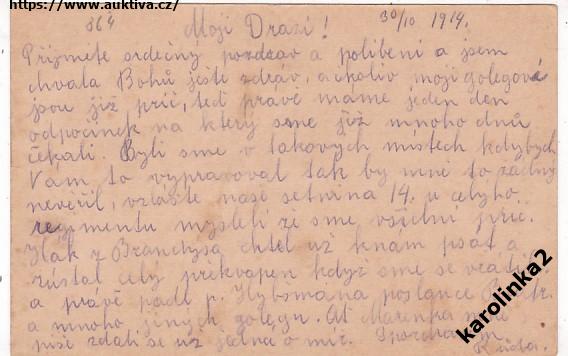 https://www.auktiva.cz/
864 Moji Drazí! 30/10 1914.
Přijmete srdečný pozdrav a políbení a jsem
chvala Bohů jestě zdráv, ačkoliv moji golegové
jsou již prič, teď právě máme jeden den
odpočinek na který sme již mnoho dnů
čekali. Byli sme v takových místech kdybych
Vám to vypravoval tak by mně to žádny
nevěřil, vzláště naše setnina 14. u celyho
regimentu mysleli že sme všichni prič.
z Brandysa chtěl už knám psát a
zůstal celý překvapen když sme se vrátili
a právě padl p. poslance
a mnoho jinych golegu. At Mařenka
piši zdali se už jedna o mič.
karolinka2